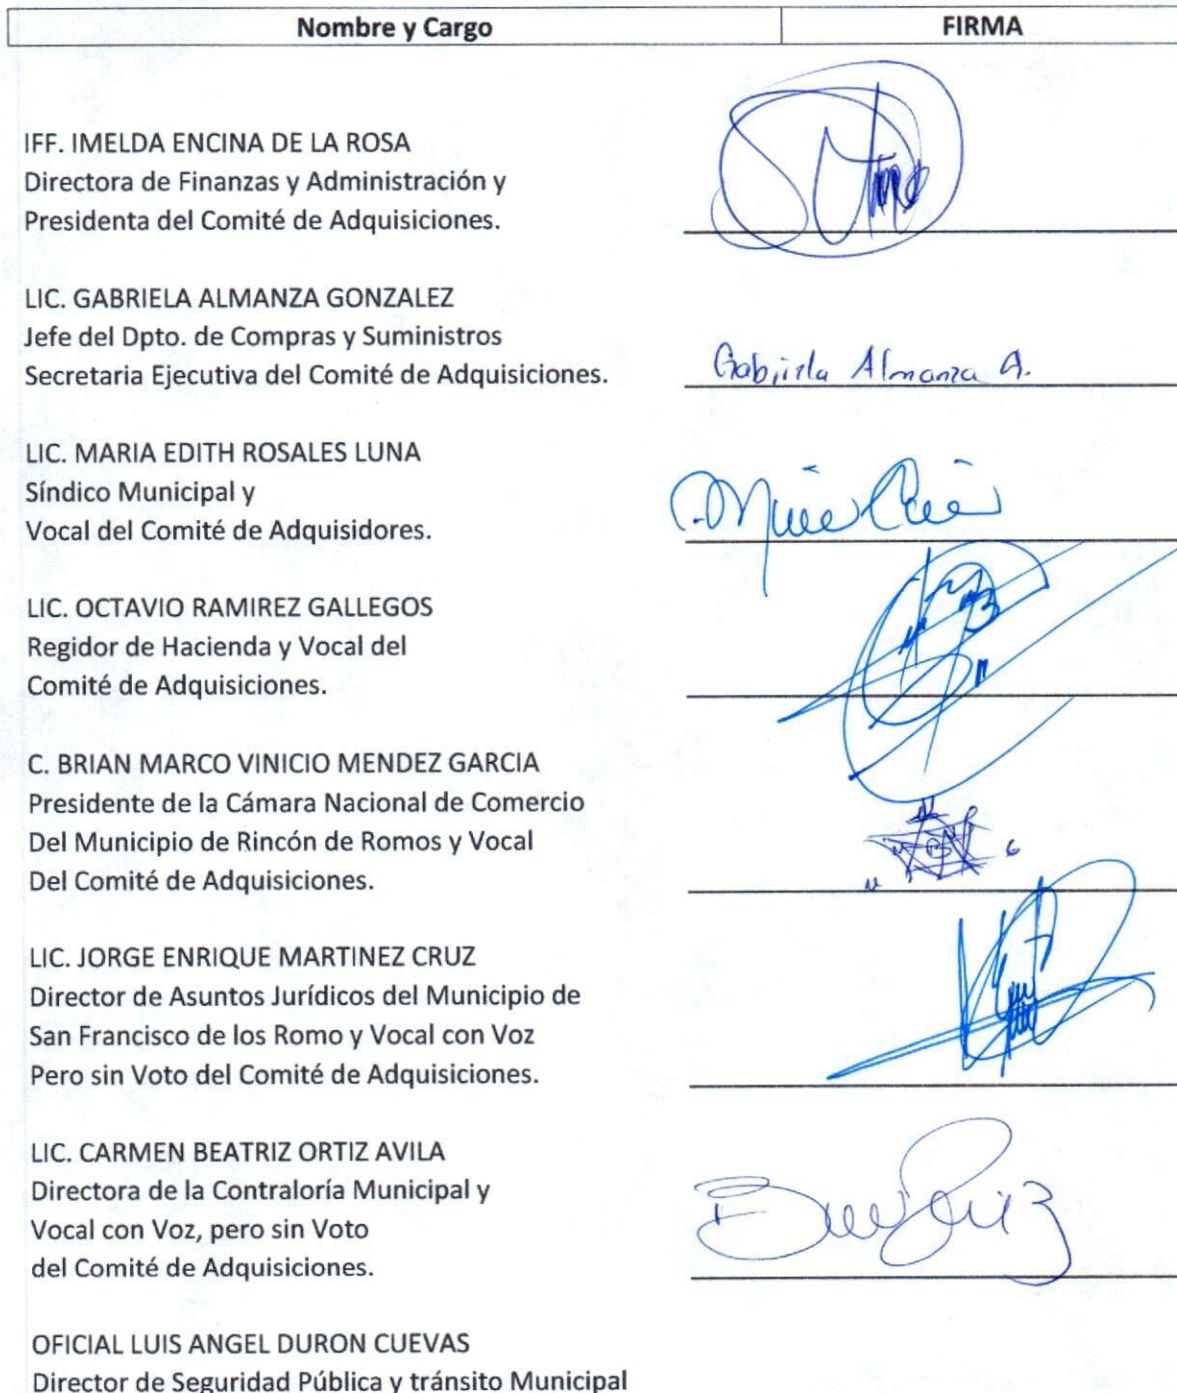 Nombre y Cargo FIRMA
IFF. IMELDA ENCINA DE LA ROSA
Directora de Finanzas y Administración y
Presidenta del Comité de Adquisiciones.
LIC. GABRIELA ALMANZA GONZALEZ
Jefe del Dpto. de Compras y Suministros
Secretaria Ejecutiva del Comité de Adquisiciones.
Gabriela Almanza G.
LIC. MARIA EDITH ROSALES LUNA
Síndico Municipal y
Vocal del Comité de Adquisidores.
LIC. OCTAVIO RAMIREZ GALLEGOS
Regidor de Hacienda y Vocal del
Comité de Adquisiciones.
C. BRIAN MARCO VINICIO MENDEZ GARCIA
Presidente de la Cámara Nacional de Comercio
Del Municipio de Rincón de Romos y Vocal
Del Comité de Adquisiciones.
LIC. JORGE ENRIQUE MARTINEZ CRUZ
Director de Asuntos Jurídicos del Municipio de
San Francisco de los Romo y Vocal con Voz
Pero sin Voto del Comité de Adquisiciones.
LIC. CARMEN BEATRIZ ORTIZ AVILA
Directora de la Contraloría Municipal y
Vocal con Voz, pero sin Voto
del Comité de Adquisiciones.
OFICIAL LUIS ANGEL DURON CUEVAS
Director de Seguridad Pública y tránsito Municipal